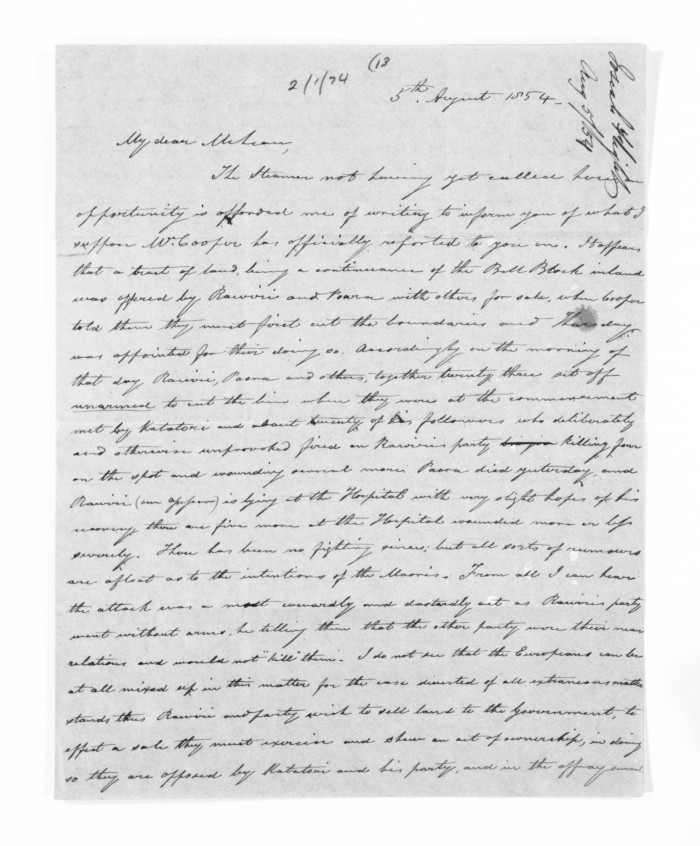 2/1/74
(13
Josiah Flight
Aug 5/54
5th. August 1854-
My dear McLean,
The Steamer not having yet called here
opportunity is afforded me of writing to inform you of what I
suppose Mr. Cooper has officially reported to you on. It appears
that a tract of land, being a continuance of the Bell Block inland
was offered by Rawiri and Paora with others for sale, when Cooper
told them they must first cut the boundaries and Thursday
was appointed for their doing so. Accordingly on the morning of
that day Rawiri, Paora and others, together twenty three set off
unarmed to cut the line when they were at the commencement
met by Katatori and about twenty of his followers who deliberately
and otherwise unprovoked fired on Rawiri's party killing four
on the spot and wounding several more. Paora died yesterday, and
Rawiri (our assessor) is lying at the Hospital with very slight hopes of his
recovery, there are five more at the Hospital wounded more or less
severely. There has been no fighting since; but all sorts of rumours
are afloat as to the intentions of the Maoris. From all I can hear
the attack was a most cowardly and dastardly act as Rawiri's party
went without arms, he telling them that the other party were their near
relations and would not "kill" them. I do not see that the Europeans can be
at all mixed up in this matter for the case divested of all extraneous matter
stands thus Rawiri and party wish to sell land to the Government, to
effect a sale they must exercise and shew an act of ownership, in doing
so they are opposed by Katatori and his party, and in the affray